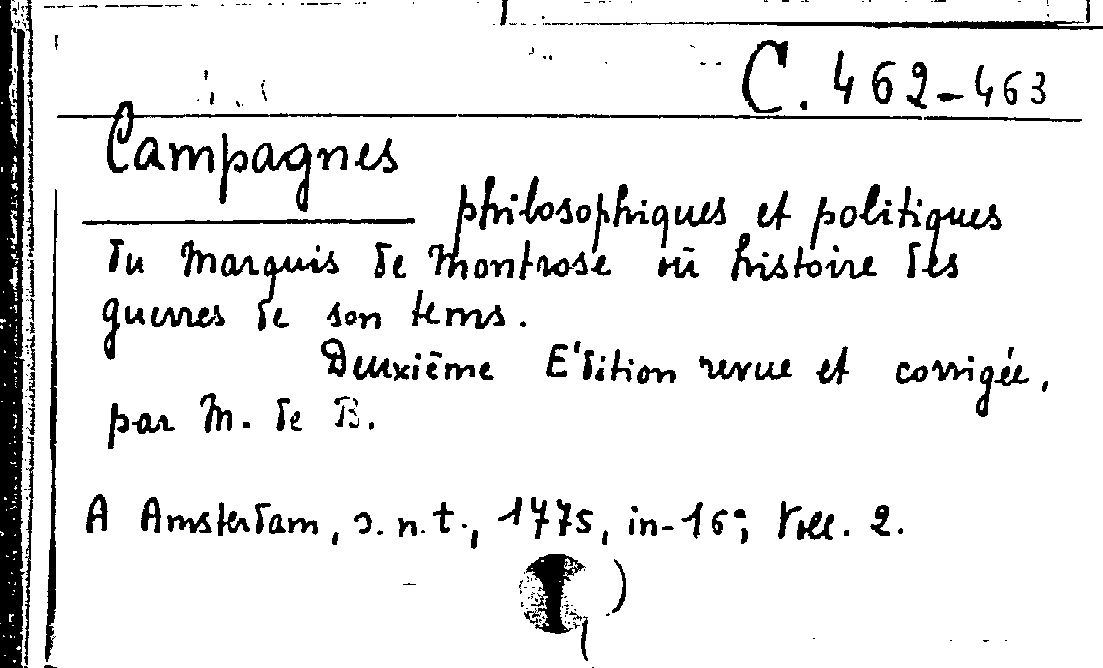 C. 462-463
Campagnes
philosophiques et politiques
du Marquis de Montrose où histoire des
guerres de son tems.
Deuxième E'dition revue et corrigée,
par M. de B.
A Amsterdam, s. n. t., 1775, in-16°; Voll. 2.